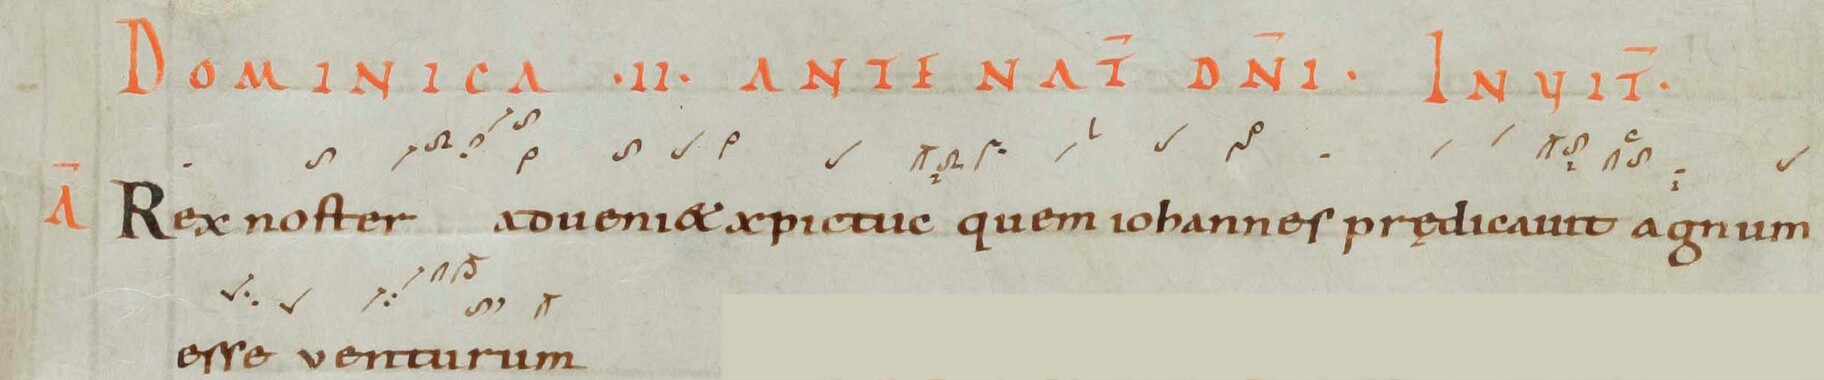 DOMINICA ·II· ANTE NAT̄ DN̄I · INVIT̄·
Ā Rex noster adueni& xpictuc quem iohannes prędicauit agnum
esse venturum